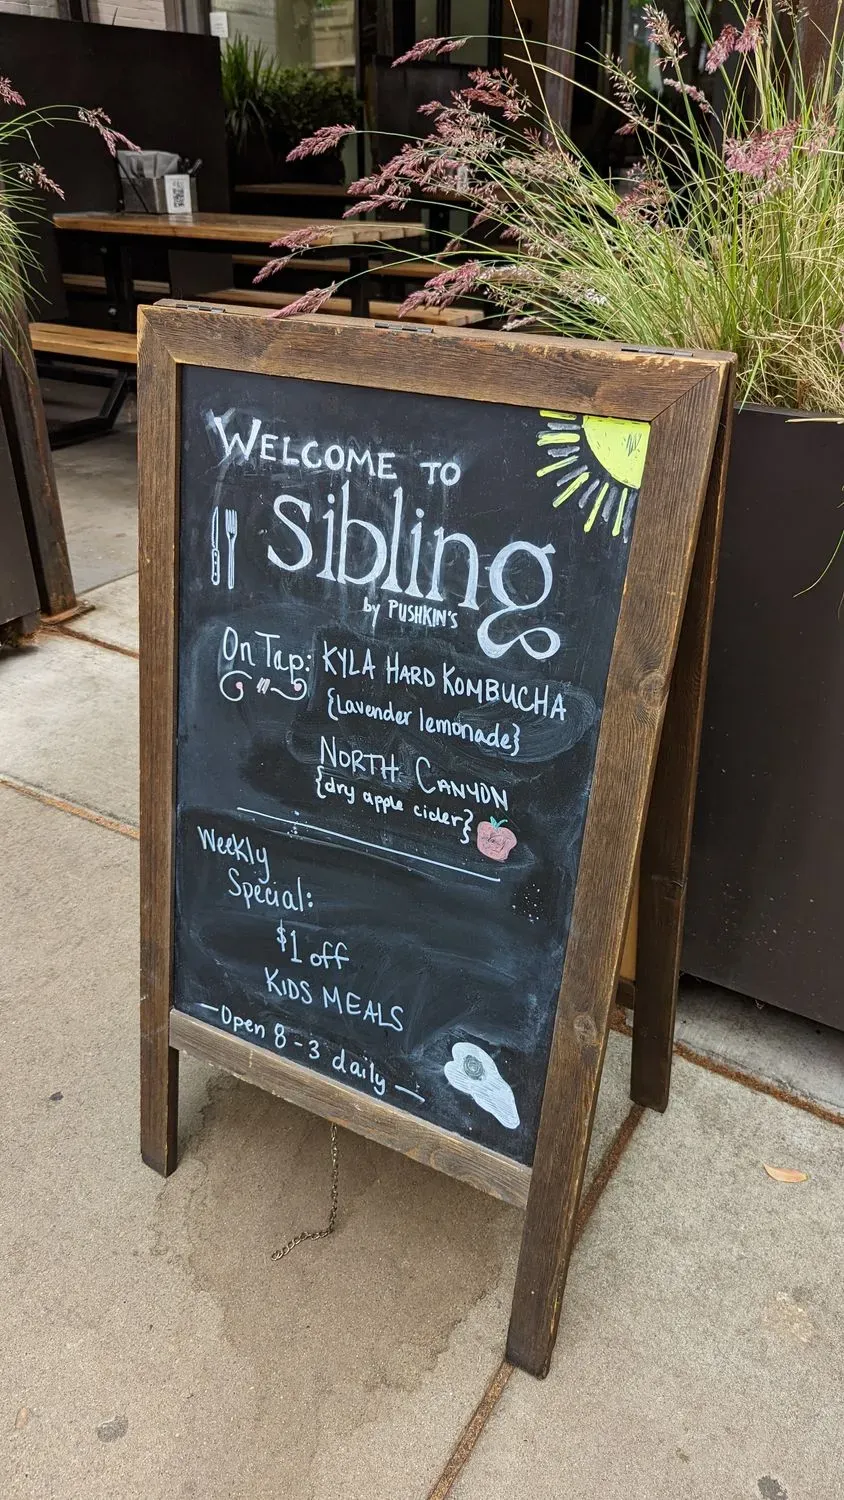 WELCOME TO
Sibling
by PUSHKIN'S
On Tap: KYLA HARD KOMBUCHA
{Lavender lemonade}
NORTH CANYON
{dry apple cider}
Weekly
Special:
$1 off
KIDS MEALS
—Open 8-3 daily—